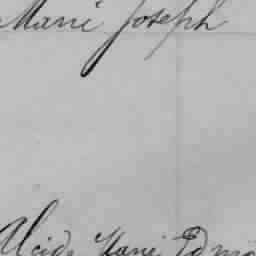 Marie Joseph
Alcide Marie Edmo